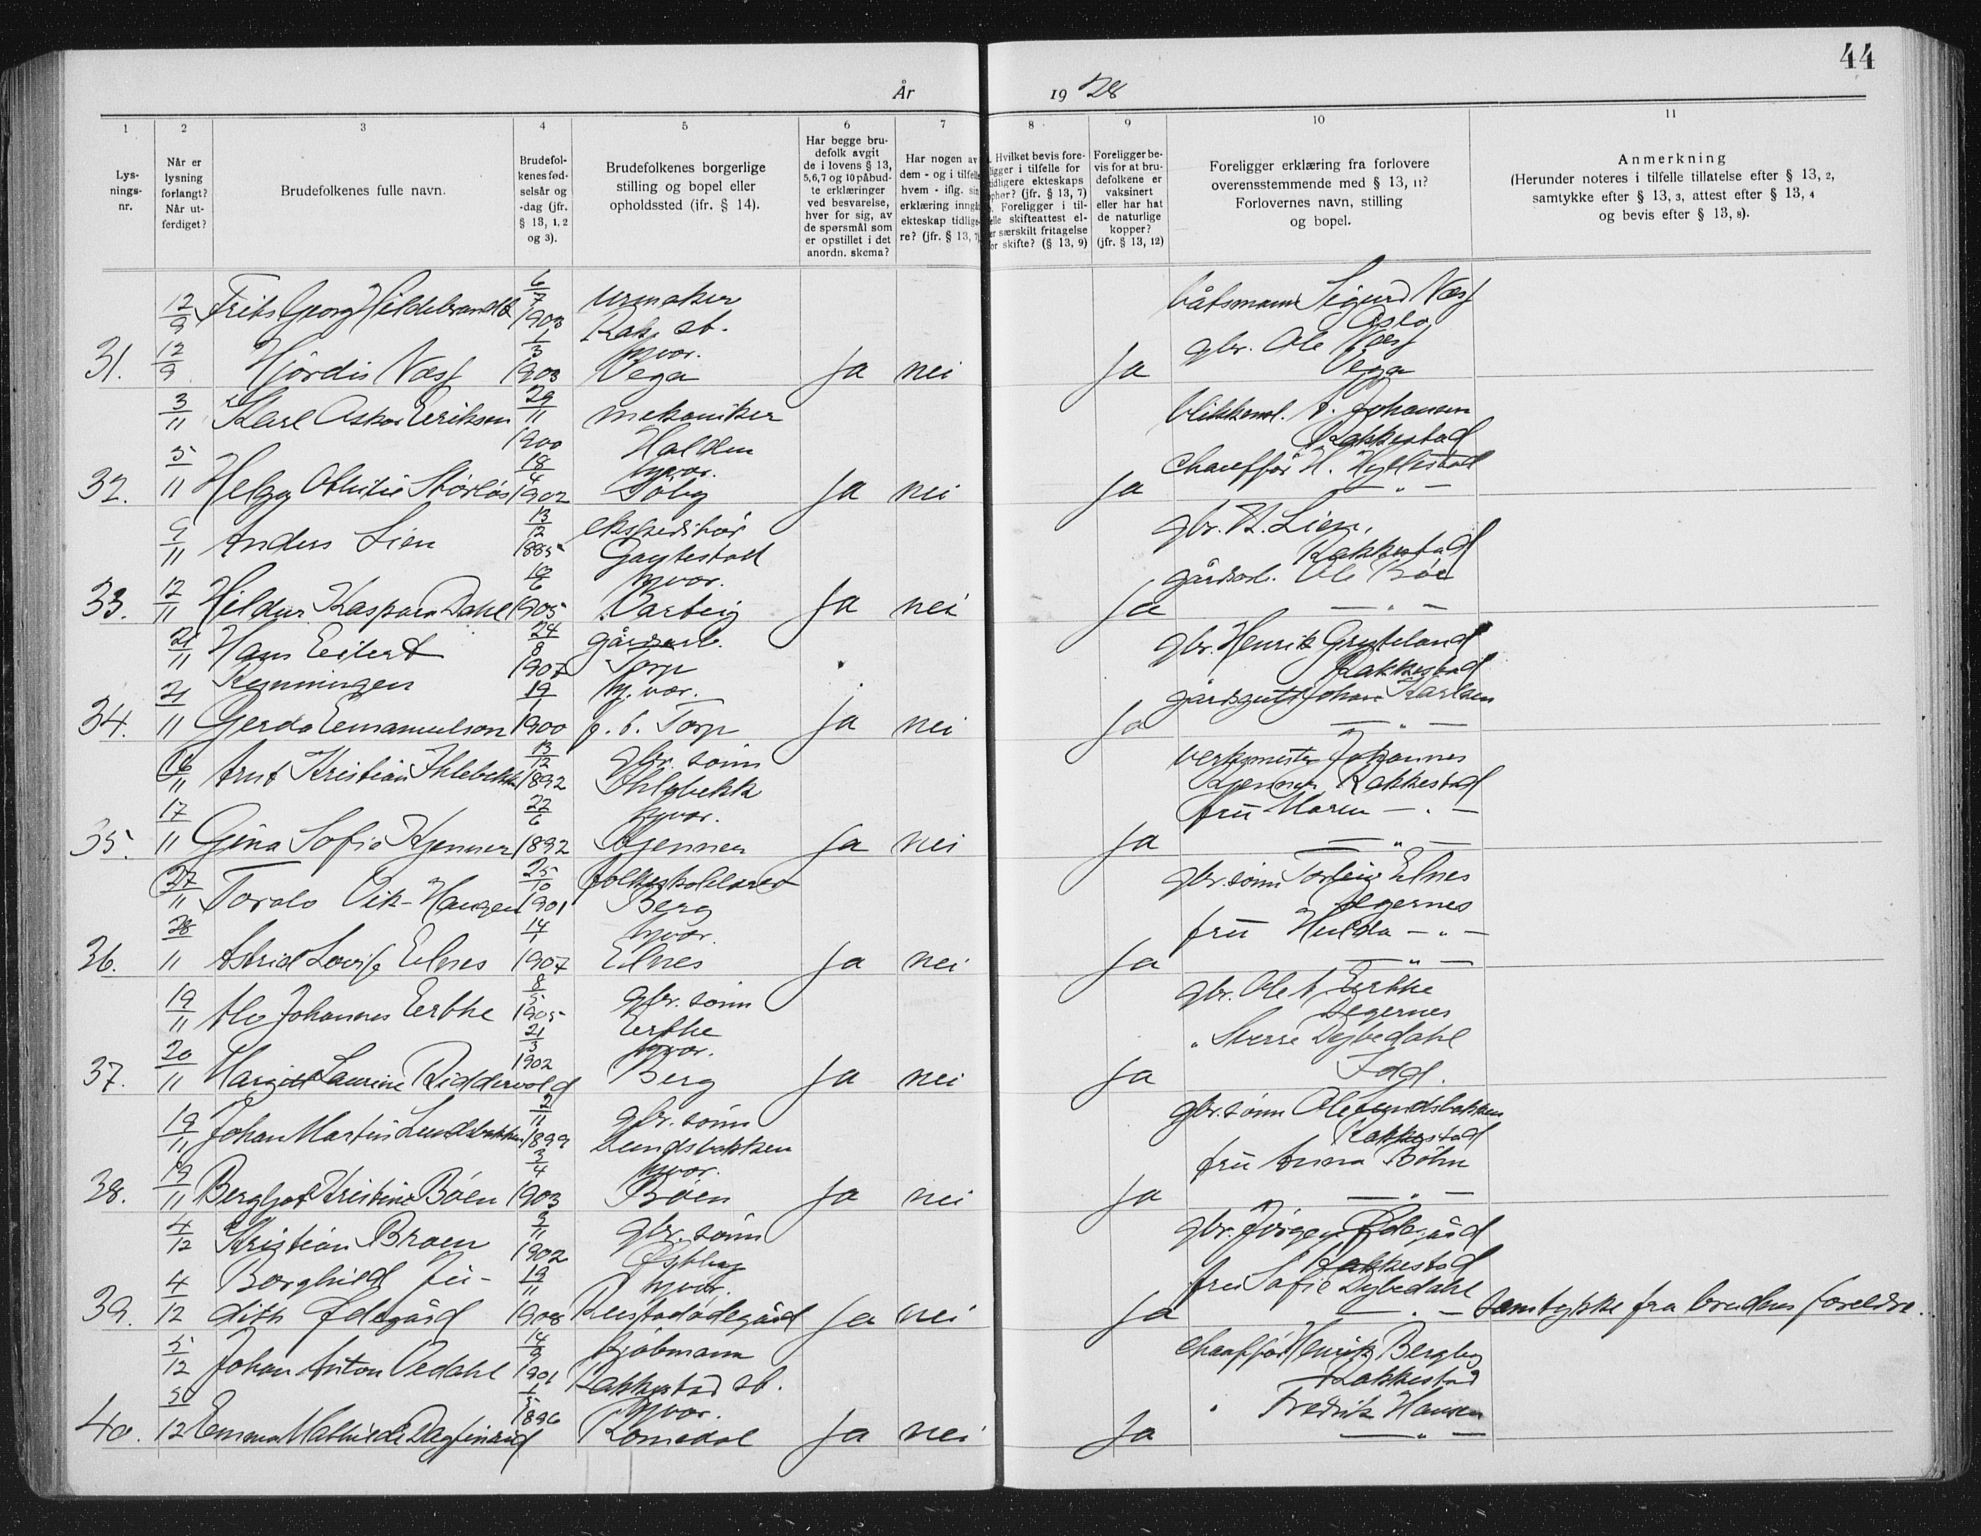 44
År 1928
1 2 3 4 5 6 7 8 9 10 11
Lys-
nings-
nr.
Når er
lysning
forlangt?
Når ut-
ferdiget?
Brudefolkenes fulle navn.
Brudefol-
kenes fød-
selsår og
-dag (jfr.
§ 13, 1, 2
og 3).
Brudefolkenes borgerlige
stilling og bopel eller
opholdssted (ifr. § 14).
Har begge bru-
defolk avgit
de i lovens § 13,
5, 6, 7 og 10 påbud-
te erklæringer
ved besvarelse,
hver for sig, av
de spørsmål som
er opstillet i det
anordn. skema?
Har nogen av
dem - og i tilfelle
hvem - iflg. sin
erklæring inngå
ekteskap tidlige-
re? (jfr. § 13, 7)
Hvilket bevis fore-
ligger i tilfelle for
tidligere ekteskaps
ophør? (jfr. § 13, 7)
Foreligger i til-
felle skifteattest el-
er særskilt fritagelse
for skifte? (§ 13, 9)
Foreligger be-
vis for at bru-
defolkene er
vaksinert
eller har hat
de naturlige
kopper?
(jfr. § 13, 12)
Foreligger erklæring fra forlovere
overensstemmende med § 13, 11?
Forlovernes navn, stilling
og bopel.
Anmerkning
(Herunder noteres i tilfelle tillatelse efter § 13, 2,
samtykke efter § 13, 3, attest efter § 13, 4
og bevis efter § 13, 8).
12/9 Frits Georg Hildebrandt 6/7 1903 urmaker
Rak. sb.
båtsmann Sigurd Næss
Oslo
31. 12/9 Hjørdis Næss 1/3 1903 hjvær.
Vega Ja nei Ja gbr. Ole Næss
Vega
3/11 Karl Oskar Eriksen 29/11 1900 mekaniker
Halden
blikkensl. A. Johansen
Rakkestad
32. 5/11 Helga Othilie Størlös 18/4 1902 hjvær.
Ja nei Ja chauffør H.
— " —
9/11 Anders Lien 13/12 1885 ekspeditør
gbr. A. Lien,
Rakkestad
33. 12/11 Hildur Kaspara Dahl 12/6 1905 hjvær.
Varteig Ja nei Ja gårdsarb. Ole Bøe
— " —
21/11 Hans Eilert
Kynningen 24/8 1907 gårdsarb.
Torp
gbr. Henrik Gryteland
Rakkestad
34. 21/11 Gerda Emanuelson 19/1 1900 hj. vær.
p. t. Torp Ja nei Ja gårdsgutt Johan Karlsen
— " —
16/11 Arnt Kristian Ihlebekk 13/12 1892 gbr. sønn
Ihlebekk
verksmester Johannes
Kjenner Rakkestad
35. 17/11 Gina Sofie Kjenner 22/6 1892 hjvær.
Kjenner Ja nei Ja fru Maren — " —
— " —
27/11 Toralv Vik-Haugen 25/10 1901 folkeskolelærer
Berg
gbr. sønn Torleiv Elnes
Degernes
36. 28/11 Astrid Lovise Elnes 14/1 1907 hjvær.
Elnes Ja nei Ja fru Hulda — " —
— " —
19/11 Alv Johannes Ertke 8/5 1905 gbr. sønn
Ertke
gbr. Ole A. Ertke
Degernes
37. 20/11 Margit Laurine Riddervold 21/3 1902 hjvær.
Berg Ja nei Ja " Sverre Dybedahl
Idd.
19/11 Johan Martin Lundsbakken 2/11 1899 gbr. sønn
Lundsbakken
gbr. sønn Ole Lundsbakken
Rakkestad
38. 19/11 Bergljot Kristine Bøen 3/4 1903 hjvær.
Bøen Ja nei Ja fru Anna Bøhn
— " —
4/12 Kristian Braen 3/11 1902 gbr. sønn
Østby
gbr. Jørgen Ødegård
Rakkestad
39. 4/12 Borghild Ju-
dith Ødegård 19/11 1908 hjvær.
Rustadødegård Ja nei Ja fru Sofie Dybedahl
— " — Samtykke fra brudens foreldre.
5/12 Johan Anton Oedahl 14/9 1901 kjøbmann
Rakkestad sb.
chauffør Henrik Bergby
Rakkestad
40. 30/12 Emma Mathilde Dagfinrud 1/5 1896 hjvær.
Romedal Ja nei Ja " Fredrik Hansen
— " —